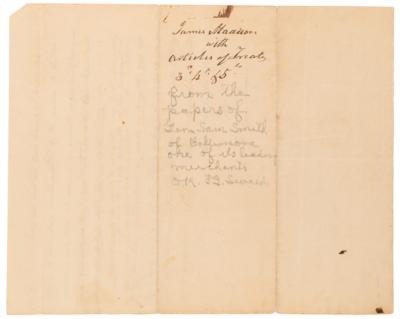 James Madison
with
articles of Treaty
3d 4th & 5th
from the
papers of
Gen Sam Smith
of Baltimore
one of its leading
merchants
O.K.